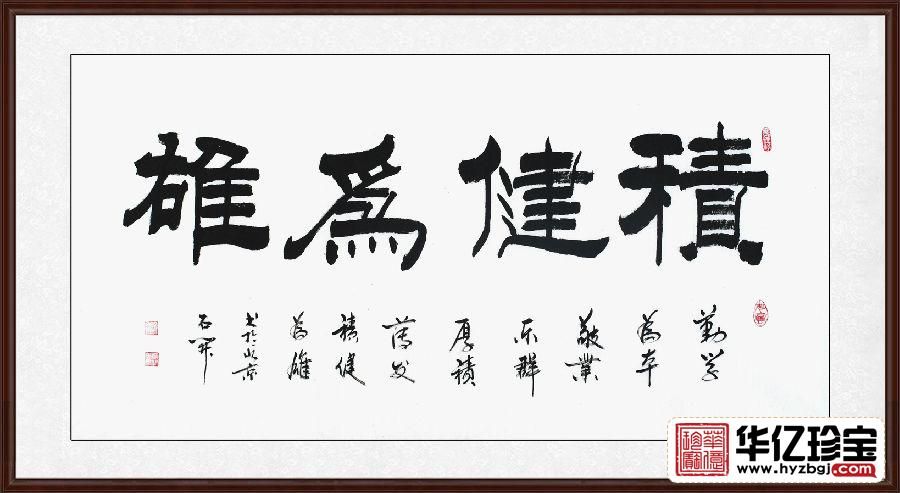 積健爲雄
勤学
為本
敬業
乐群
厚積
薄发
積健
為雄
书於北京
石开
華億珍寶
华亿珍宝
www.hyzbgj.com